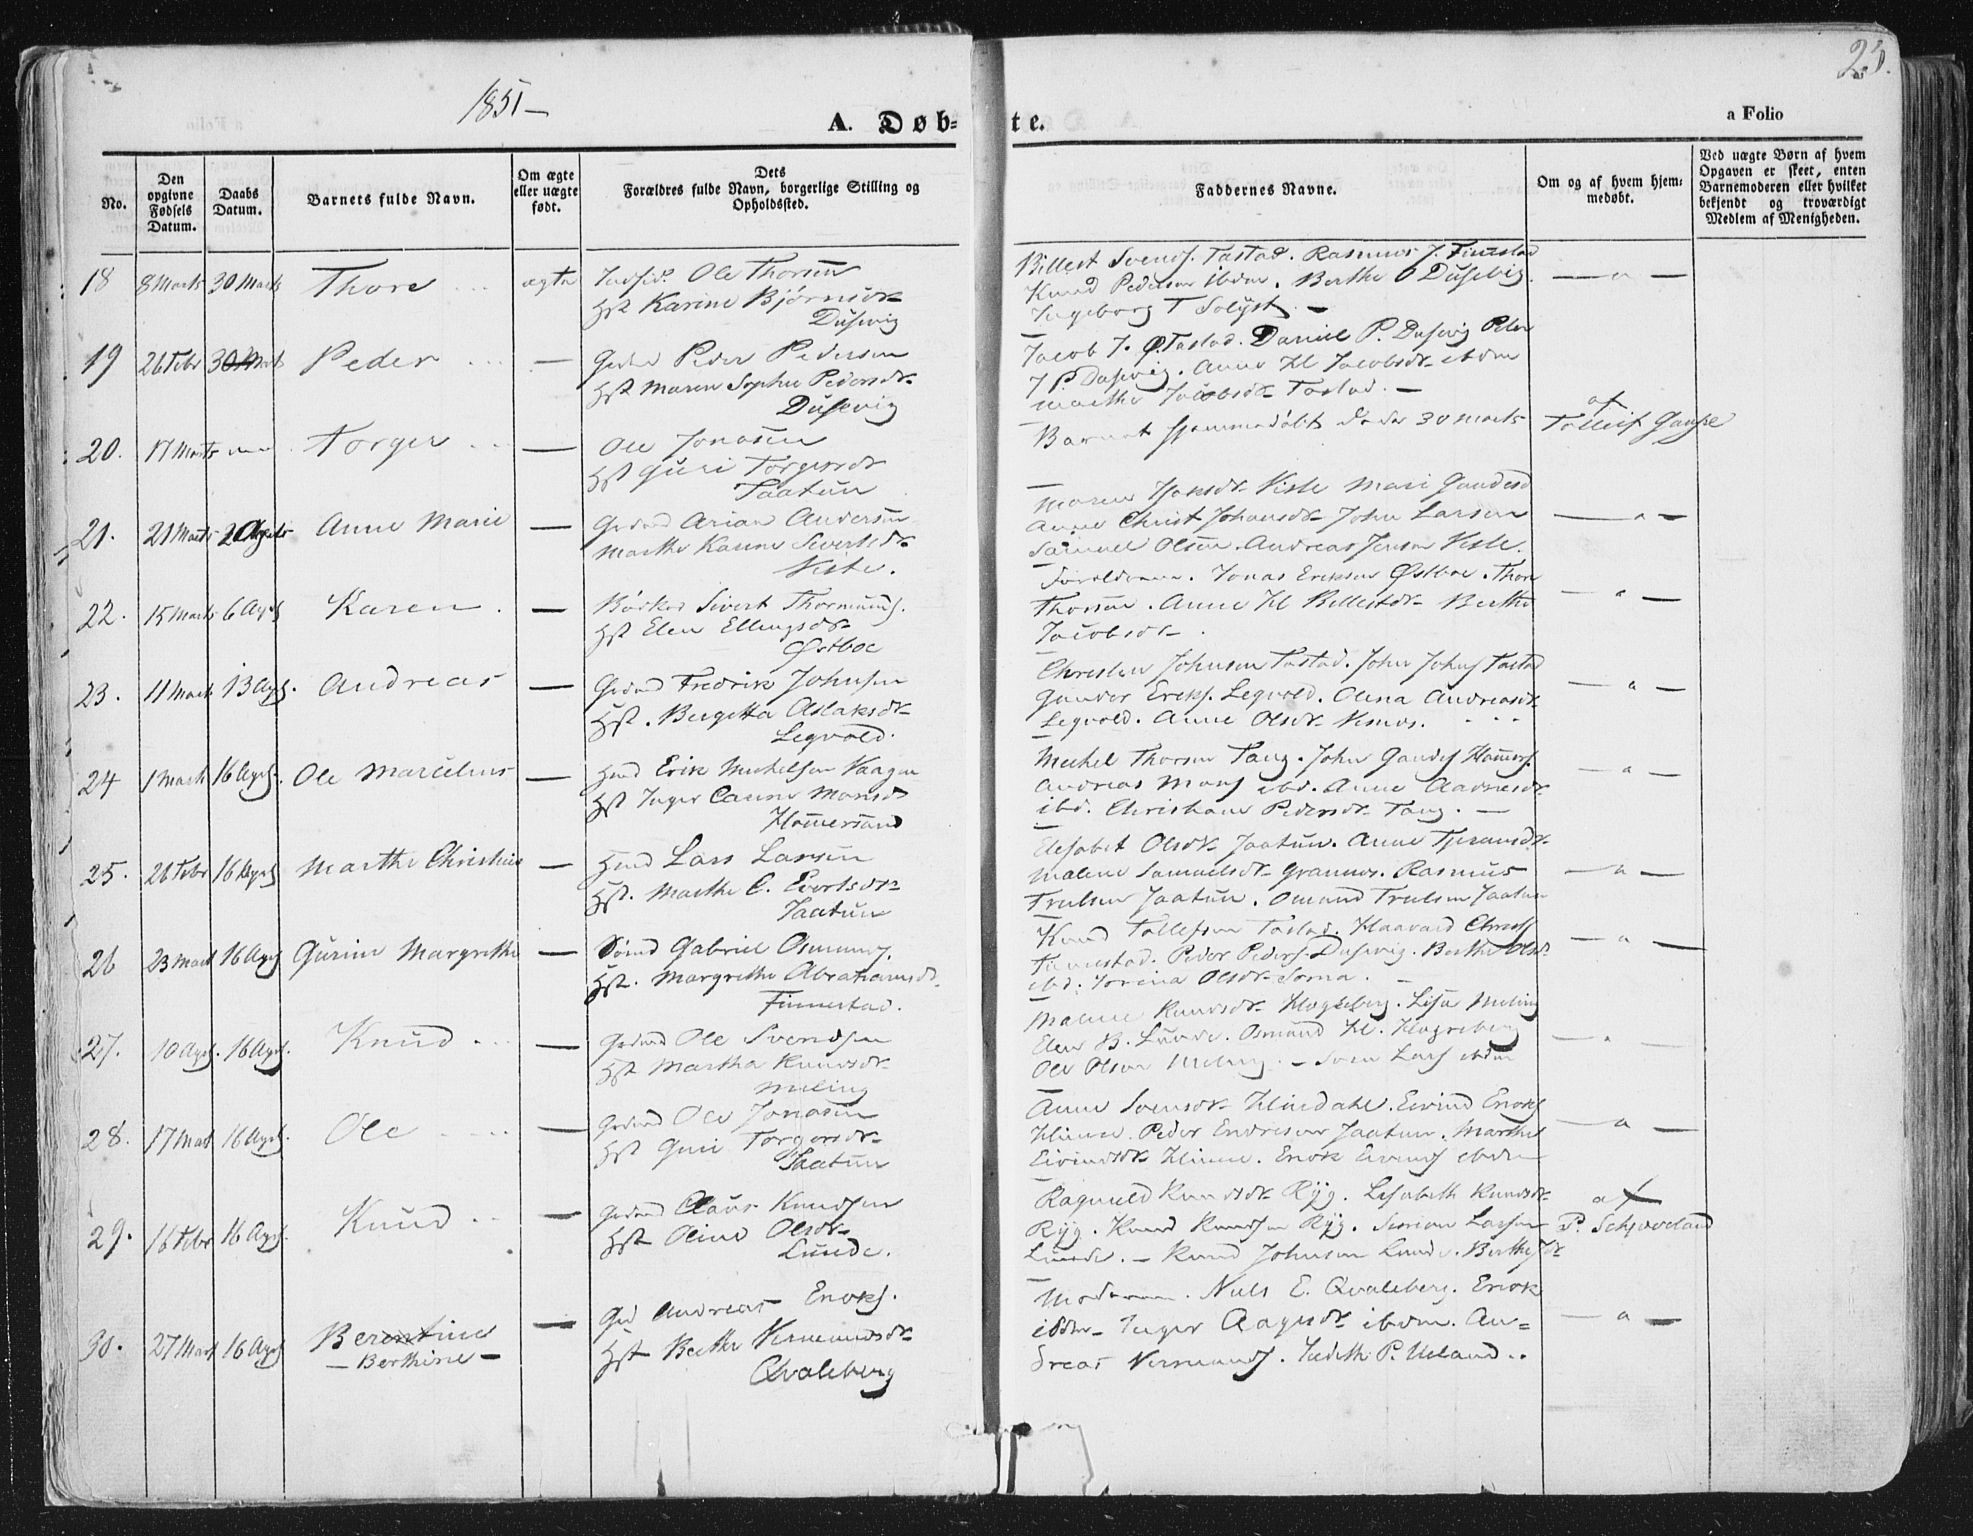 1851-
23.
A. Døb-
te.
a Folio
No.
Den opgivne Fødsels Datum.
Daabs Datum.
Barnets fulde Navn.
Om ægte eller uægte født.
Dets Forældres fulde Navn, borgerlige Stilling og Opholdssted.
Faddernes Navne.
Om og af hvem hjem- medøbt.
Ved uægte Børn af hvem Opgaven er skeet, enten Barnemoderen eller hvilket bekjendt og troværdigt Medlem af Menigheden.
18 8 Marts 30 Marts Thore ægte Ole Thorsen
Hst Karine Bjørnsdr
Dusevig
Billest Svends. Tastad. Rasmus J. Finnestad
Knud Pedersen ibdm. Berthe O Dusevig
Ingeborg T Solyst. - — a —
19 26 Febr 30 Marts Peder — Gudmd Peder Pedersen
Hst Maren Sophie Pedersdr
Dusevig
Jacob J. Ø. Tastad. Daniel P. Dusevig Peder
J P Dusevig. Anne Hl Jacobsdr ibdm
Marthe Jacobsdr Tastad. —
20. 17 Marts Torger — Ole Jonasen
Hst Guri Torgersdr
Jaatun
Barnet hjemmedøbt døde 30 Marts af Tolleif Gausel
21. 21 Marts Anne Marie — Gudmd Arian Andersen
Marthe Karine Sivertsdr
Viste.
Maren Hansdr Viste Mari Gundesd
Anne Christ Johansdr John Larsen
Samuel Olsen. Andreas Jensen Viste. — a —
22. 15 Marts 6 Apl Karen — Bødker Sivert Thormunds.
Hst Elen Ellingsdr
Østboe
Forældrene. Jonas Eriksen Østboe. Thore
Thorsen. Anne Hl Billestdr Berthe
Jacobsdr. — a —
23. 11 Marts 13 Apl. Andreas — Gudmd Fredrik Johnsen
Hst. Bergitta Aslaksdr
Legvold.
Christen Johnsen Tastad. John Johns Tastad
Gunder Eriks. Legvold. Olena Andreasdr
Legvold. Anne Olsdr Visnes. — a —
24 1 Marts 16 Apl. Ole Marcelius — Hmd Erik Michelsen Vaagen
Hst Inger Carine Monsdr
Hommersand
Michel Thorsen Tang. John Gundes Hommers.
Andreas Mons ibd. Anne Aadnesdr
ibd. Christiane Pedersdr Tang. — — a —
25. 26 Febr 16 Apl Marthe Christine — Hmd Lars Larsen
Hst. Marthe C. Evertsdr
Jaatun
Elisabet Olsdr Jaatun. Anne Tjeransdr
Malene Samuelsdr Grannes. Rasmus
Trulsen Jaatun. Omund Trulsen Jaatun — a —
26 23 Mart 16 Apl Gurine Margrethe — Sømd Gabriel Osmunds.
Hst. Margrethe Abrahamsd.
Finnestad.
Knud Tollefsen Tastad. Haavard Chrs
Finnestad. Peder Peders. Dusevig. Berthe Olsd
ibd. Torina Olsdr Sørnæ. — a —
27. 10 Apl. 16 Apl. Knud — Gudmd Ole Svendsen
Hst Martha Knudsdr
Meling
Malene Knudsdr Hogseberg. Lisa Meling
Elen B. Lunde. Osmund Hl. Hogseberg
Ole Olsen Meling. — Sven Lars ibdm — a —
28. 17 Mart 16 Apl. Ole — Gudmd Ole Jonasen
Hst Guri Torgersdr
Jaatun
Anne Svensdr Hindahl. Eivind Enoks
Hinne. Peder Endresen Jaatun. Marthe
Eivindsdr Hinne. Enok Eivends ibdm — a —
29. 16 Febr 16 Apl. Knud — Gudmd Claus Knudsen
Hst Oline Olsdr
Lunde.
Ragnild Knudsdr Ryg. Lisabeth Knudsdr
Ryg. Knud Knudsen Ryg. Simon Larsen
Lunde. — Knud Johnsen Lunde. Berthe Jdr af P. Schjæveland
30. 27 Mart 16 Apl Berentine
— Berthine — — Gmd Andreas Enoks.
Hst Berthe Vermundsdr
Qvaleberg
Moderen. Niels E. Qvaleberg. Enok
ibdm Inger Aagesdr ibdm. An-
dreas Vermunds. Judith P. Ueland.. — a —